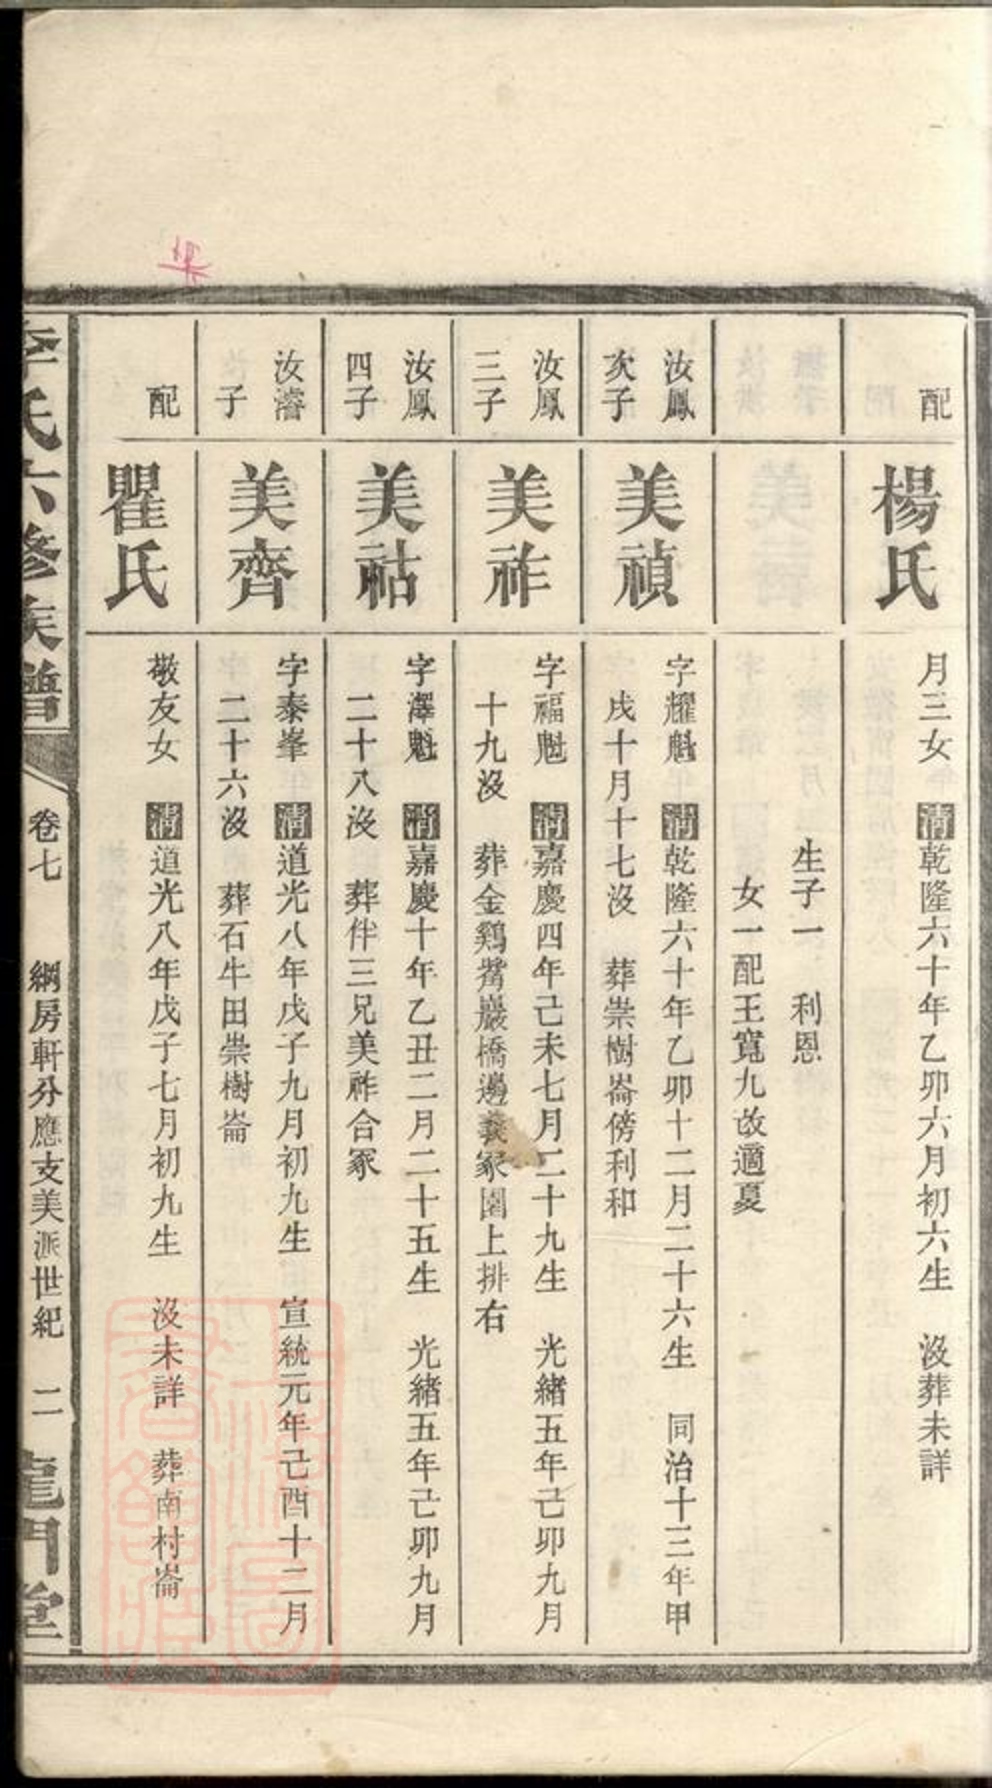 配
楊氏
月三女　清乾隆六十年乙卯六月初六生　沒葬未詳
生子一　利恩
女一配王寬九改適夏
汝鳳
次子
美禎
字耀魁　清乾隆六十年乙卯十二月二十六生　同治十三年甲
戌十月十七沒　葬崇樹崙傍利和
汝鳳
三子
美祚
字福魁　清嘉慶四年己未七月二十九生　光緒五年己卯九月
十九沒　葬金鷄嘴巖橋邊義冢圍上排右
汝鳳
四子
美祜
字澤魁　清嘉慶十年乙丑二月二十五生　光緒五年己卯九月
二十八沒　葬伴三兄美祚合冢
汝濬
子
美齊
字泰峯　清道光八年戊子九月初九生　宣統元年己酉十二月
二十六沒　葬石牛田崇樹崙
配
瞿氏
敬友女　清道光八年戊子七月初九生　沒未詳　葬南村崙
李氏六修族譜
卷七　綱房軒分應支美派世紀　二
龍門堂